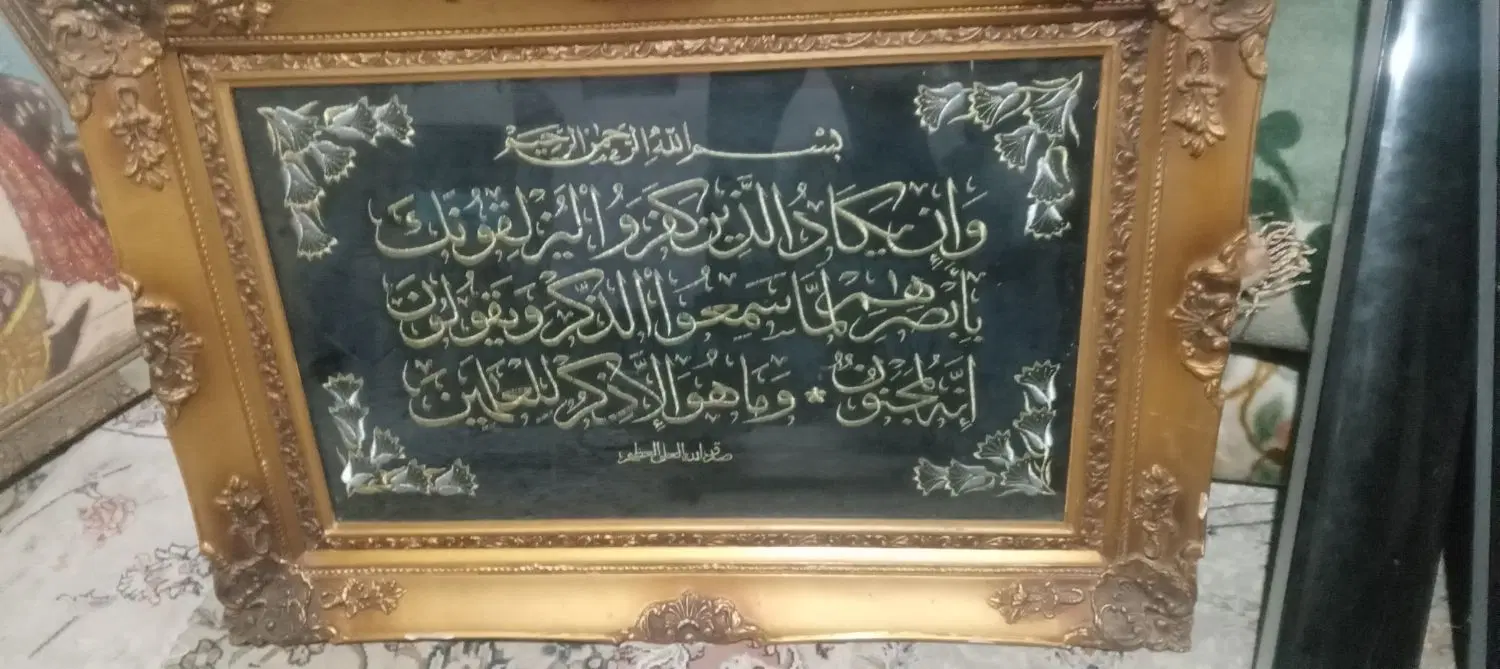 بِسْمِ اللّٰهِ الرَّحْمٰنِ الرَّحِيْمِ
وَإِن يَكَادُ الَّذِينَ كَفَرُوا لَيُزْلِقُونَكَ
بِأَبْصَٰرِهِمْ لَمَّا سَمِعُوا الذِّكْرَ وَيَقُولُونَ
إِنَّهُ لَمَجْنُونٌ * وَمَا هُوَ إِلَّا ذِكْرٌ لِلْعَٰلَمِينَ
صدق الله العلي العظيم